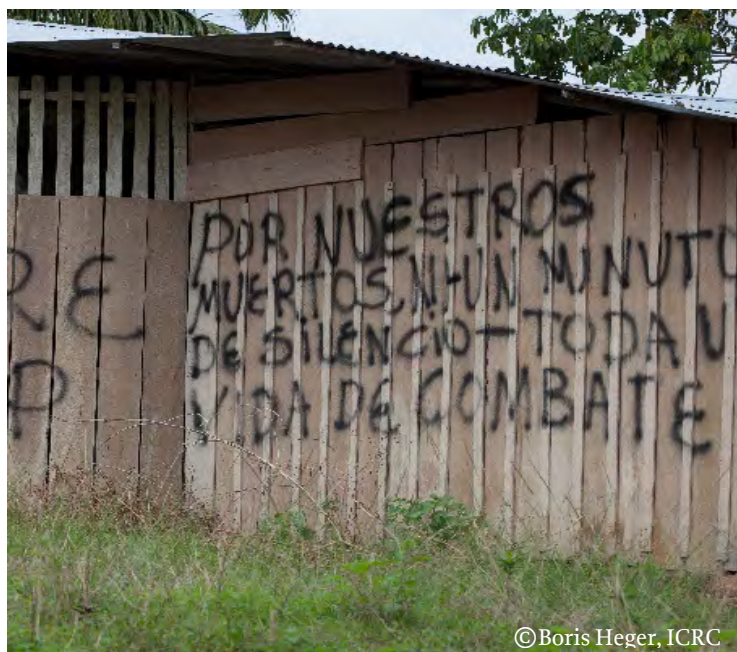 RE
P
POR NUESTROS
MUERTOS, NI UN MINUTO
DE SILENCIO - TODA U
VIDA DE COMBATE
©Boris Heger, ICRC